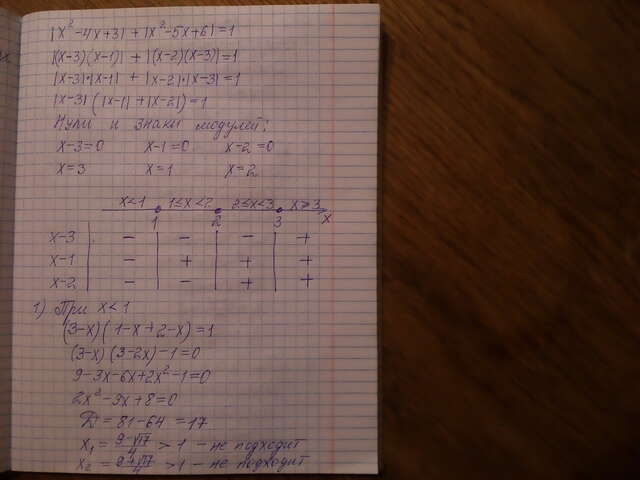 |x²-4x+3| + |x²-5x+6| = 1
|(x-3)(x-1)| + |(x-2)(x-3)| = 1
|x-3|·|x-1| + |x-2|·|x-3| = 1
|x-3|(|x-1|+|x-2|) = 1
Нули и знаки модулей:
x-3=0 x-1=0 x-2=0
x=3 x=1 x=2
x<1 1≤x<2 2≤x<3 x≥3
1 2 3 x
x-3 - - - +
x-1 - + + +
x-2 - - + +
1) При x<1
(3-x)(1-x+2-x)=1
(3-x)(3-2x)-1=0
9-3x-6x+2x²-1=0
2x²-9x+8=0
D=81-64=17
x₁=(9-√17)/4 >1 - не подходит
x₂=(9+√17)/4 >1 - не подходит